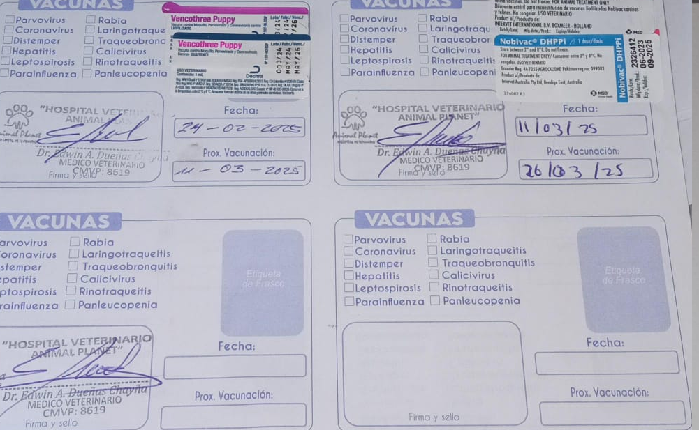 Parvovirus
Rabia
Coronavirus
Laringotraque
Distemper
Traqueobronc
Hepatitis
Calicivirus
Leptospirosis
Rinotraqueitis
Parainfluenza
Panleucopenia
Vencothree Puppy
Vencothree Puppy
"HOSPITAL VETERI
ANIMAL PLANET
Dr. Edwin A. Dueñas
MEDICO VETERINARIO
CMVP: 8619
Firma y sello
Fecha:
24-02-2025
Prox. Vacunación:
11-03-2025
Parvovirus
Rabia
Coronavirus
Laringotraque
Distemper
Traqueobronc
Hepatitis
Calicivirus
Leptospirosis
Rinotraqueitis
Parainfluenza
Panleucopeni
Nobivac® DHPPi
Nobivac® DHPPI
MSD
"HOSPITAL VETERINARIO
ANIMAL PLANET"
Animal Planet
Dr. Edwin A. Dueñas Chayña
MEDICO VETERINARIO
CMVP: 8619
Firma y sello
Fecha:
11/03/25
Prox. Vacunación:
26/03/25
VACUNAS
arvovirus
Rabia
oronavirus
Laringotraqueitis
stemper
Traqueobronquitis
epatitis
Calicivirus
ptospirosis
Rinotraqueitis
arainfluenza
Panleucopenia
Etiqueta
de Frasco
"HOSPITAL VETERINARIO
ANIMAL PLANET"
Dr. Edwin A. Dueñas Chayña
MEDICO VETERINARIO
CMVP: 8619
Firma y sello
Fecha:
Prox. Vacunación:
VACUNAS
Parvovirus
Rabia
Coronavirus
Laringotraqueitis
Distemper
Traqueobronquitis
Hepatitis
Calicivirus
Leptospirosis
Rinotraqueitis
Parainfluenza
Panleucopenia
Etiqueta
de Frasco
Firma y sello
Fecha:
Prox. Vacunación: